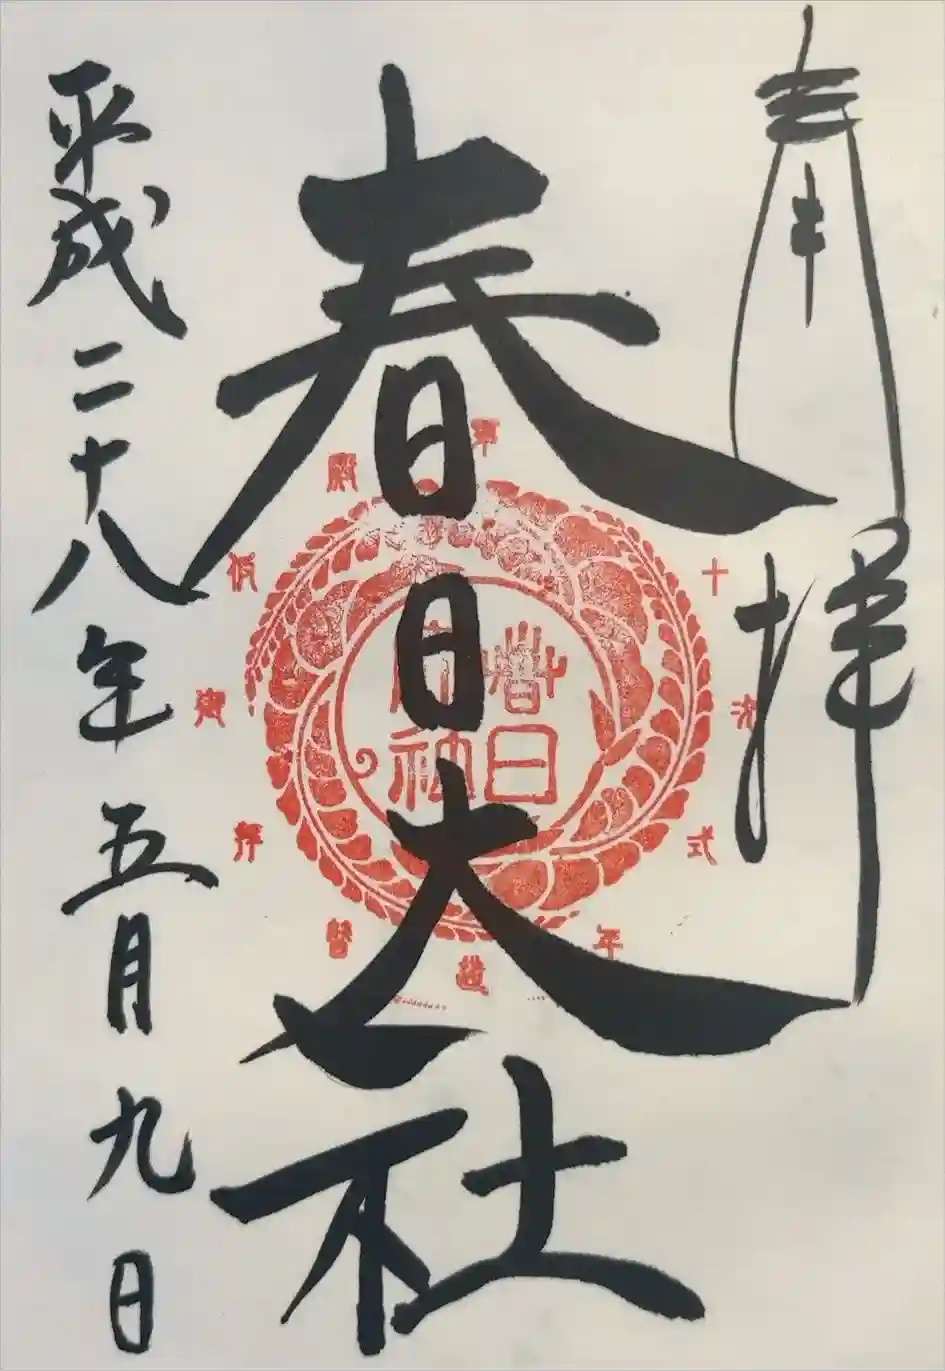 奉拝
春日大社
平成二十八年五月九日
春日
大社